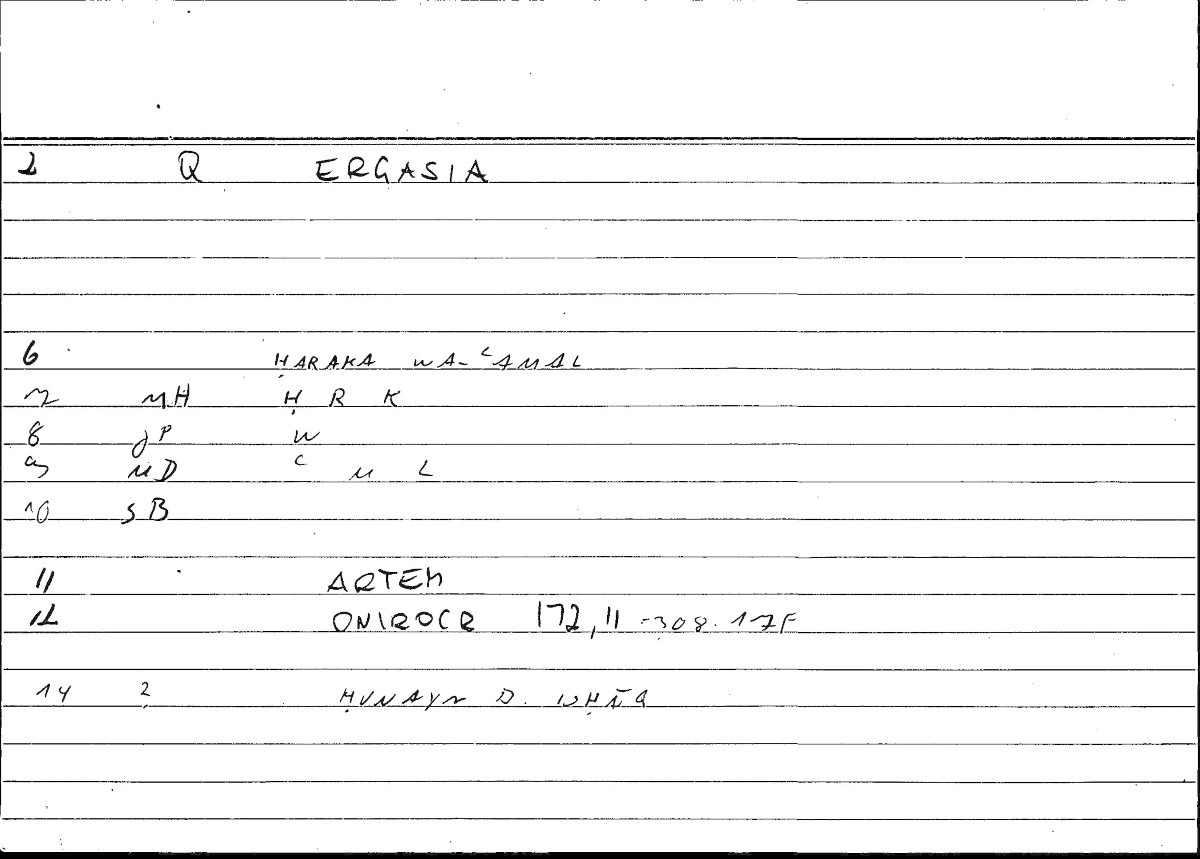 2 Q ERGASIA
6 ḤARAKA WA-ʿAMAL
7 MH Ḥ R K
8 JP W
9 MD ʿ M L
10 SB
11 ARTEM
12 ONIROCR 172,11 -308.17F
14 2 ḤUNAYN B. ISḤĀQ